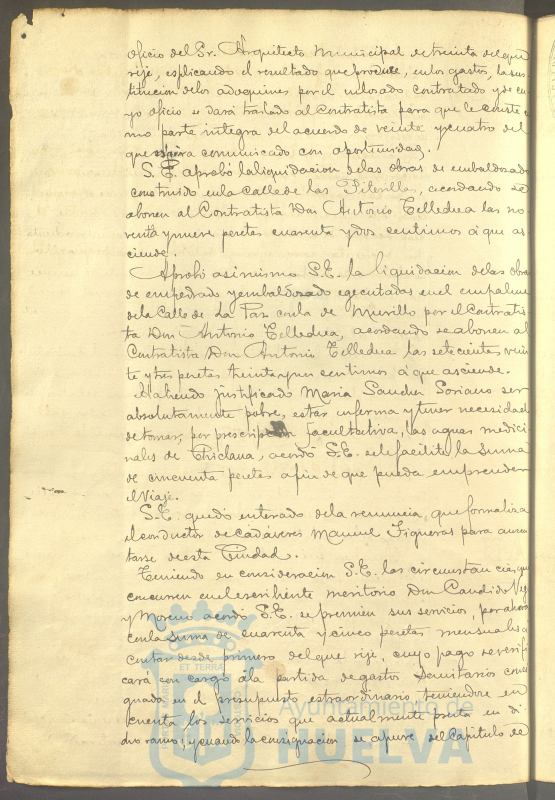 Oficio del Sr. Arquitecto Municipal de treinta del que
rije, esplicando el resultado que produce, en los gastos, la sus
titucion de los adoquines por el enlosado contratado y de cu
yo oficio se dará traslado al Contratista para que le conste co
mo parte integra del acuerdo de veinte y cuatro del
que será comunicado con oportunidad.
S. E. aprobó la liquidacion de las obras de embaldosado
construido en la calle de las Pilerillas, acordando se
abonen al Contratista Don Antonio Telledua las no
venta y nueve pesetas cuarenta y dos centimos á que as
ciende.
Aprobó asimismo S. E. la liquidacion de las obras
de empedrado y embaldosado egecutadas en el empalme
de la Calle de La Paz con la de Murillo por el Contratis
ta Don Antonio Telledua, acordando se abonen al
Contratista Don Antonio Telledua las setecientas vein
te y tres pesetas treinta y un centimos á que asciende.
Habiendo justificado Maria Sanchez Soriano ser
absolutamente pobre, estar enferma y tener necesidad
de tomar, por prescripcion facultativa, las aguas medici
nales de Chiclana, acordó S. E. se le facilite la suma
de cincuenta pesetas á fin de que pueda emprender
el viaje.
S. E. quedó enterado de la renuncia, que formaliza
el conductor de cadáveres Manuel Figueras para ausen
tarse de esta Ciudad.
Teniendo en consideracion S. E. las circunstancias que
concurren en el escribiente meritorio Don Candido Vega
y Moreno acordó S. E. se premien sus servicios, por ahora
con la suma de cuarenta y cinco pesetas mensuales á
contar desde primero del que rije, cuyo pago se verifi
cará con cargo á la partida de gastos Sanitarios consig
nado en el presupuesto extraordinario, teniendose en
cuenta los servicios que actualmente presta en di
cho ramo; y cuando la consignacion se apure del Capitulo de
ET TERRÆ
Ayuntamiento de
HUELVA